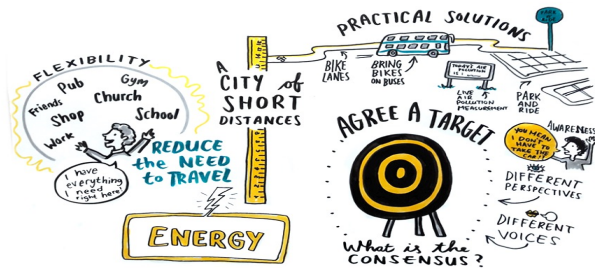 FLEXIBILITY
Pub
Gym
Friends
Church
Shop
School
Work
I have
everything
I need
right here!
REDUCE
the NEED
to TRAVEL
ENERGY
A
CITY of
SHORT
DISTANCES
PRACTICAL SOLUTIONS
BIKE
LANES
BRING
BIKES
ON BUSES
TODAY'S AIR
POLLUTION
IS
LIVE
AIR
POLLUTION
MEASUREMENT
PARK
AND
RIDE
AGREE A TARGET
What is the
CONSENSUS?
AWARENESS
YOU MEAN
I DON'T
HAVE TO
TAKE THE
CAR!?
DIFFERENT
PERSPECTIVES
DIFFERENT
VOICES